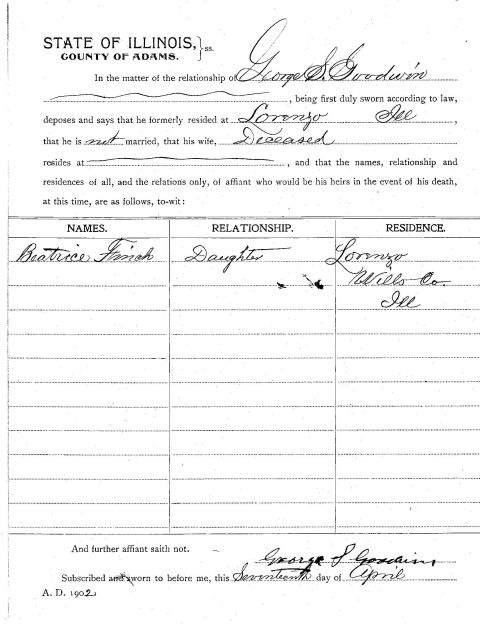 STATE OF ILLINOIS, } ss.
COUNTY OF ADAMS.
In the matter of the relationship of George S. Goodwin
, being first duly sworn according to law,
deposes and says that he formerly resided at Lorenzo Ill ,
that he is not married, that his wife, Deceased
resides at , and that the names, relationship and
residences of all, and the relations only, of affiant who would be his heirs in the event of his death,
at this time, are as follows, to-wit:
NAMES. RELATIONSHIP. RESIDENCE.
Beatrice Finch Daughter Lorenzo
Wills Co.
Ill
And further affiant saith not.
George S Goodwin
Subscribed and sworn to before me, this Seventeenth day of April
A. D. 1902